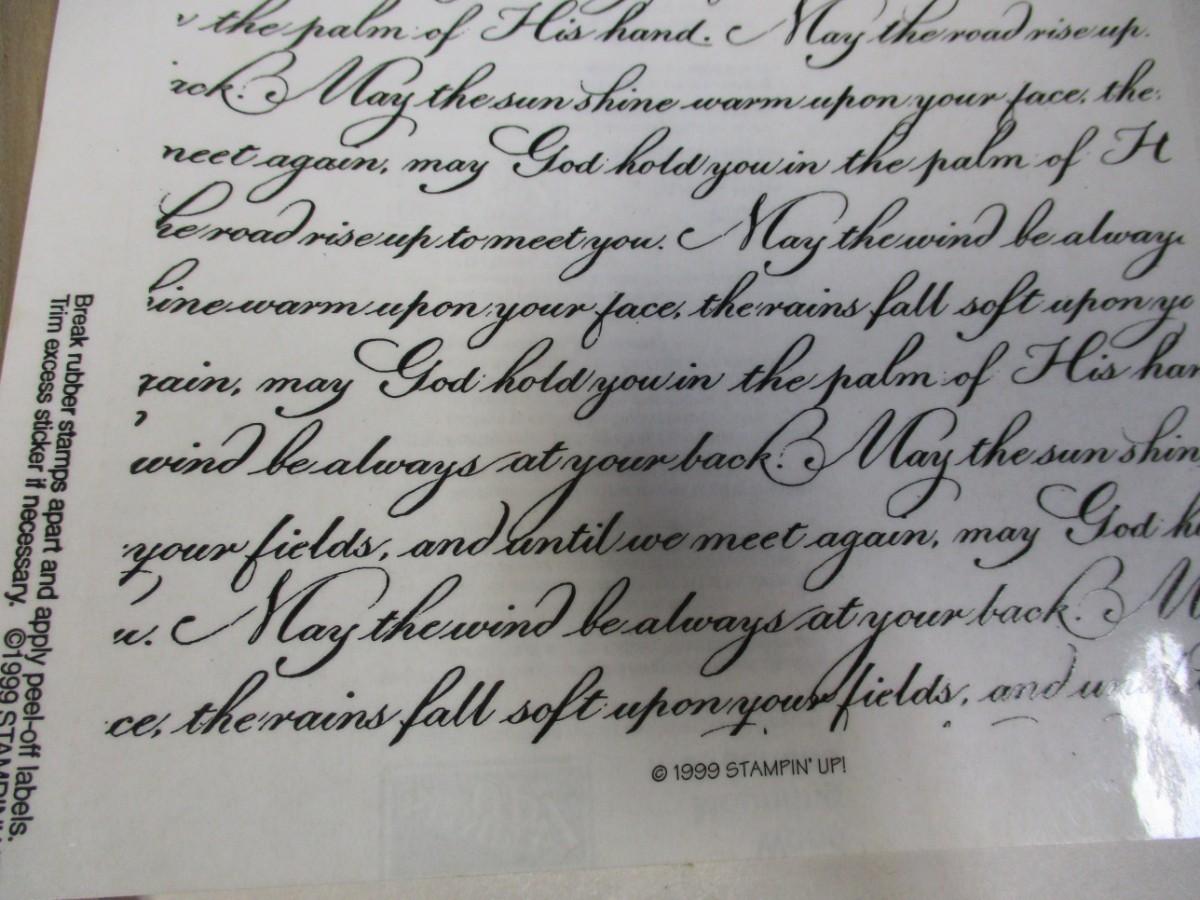 the palm of His hand. May the road rise up
May the sun shine warm upon your face, the
again, may God hold you in the palm of H
he road rise up to meet you. May the wind be always
hine warm upon your face, the rains fall soft upon yo
may God hold you in the palm of His han
wind be always at your back. May the sun shin
your fields, and until we meet again, may God h
u. May the wind be always at your back. M
ce, the rains fall soft upon your fields, and un
© 1999 STAMPIN' UP!
Break rubber stamps apart and apply peel-off labels.
Trim excess sticker if necessary. ©1999 STAMPIN'